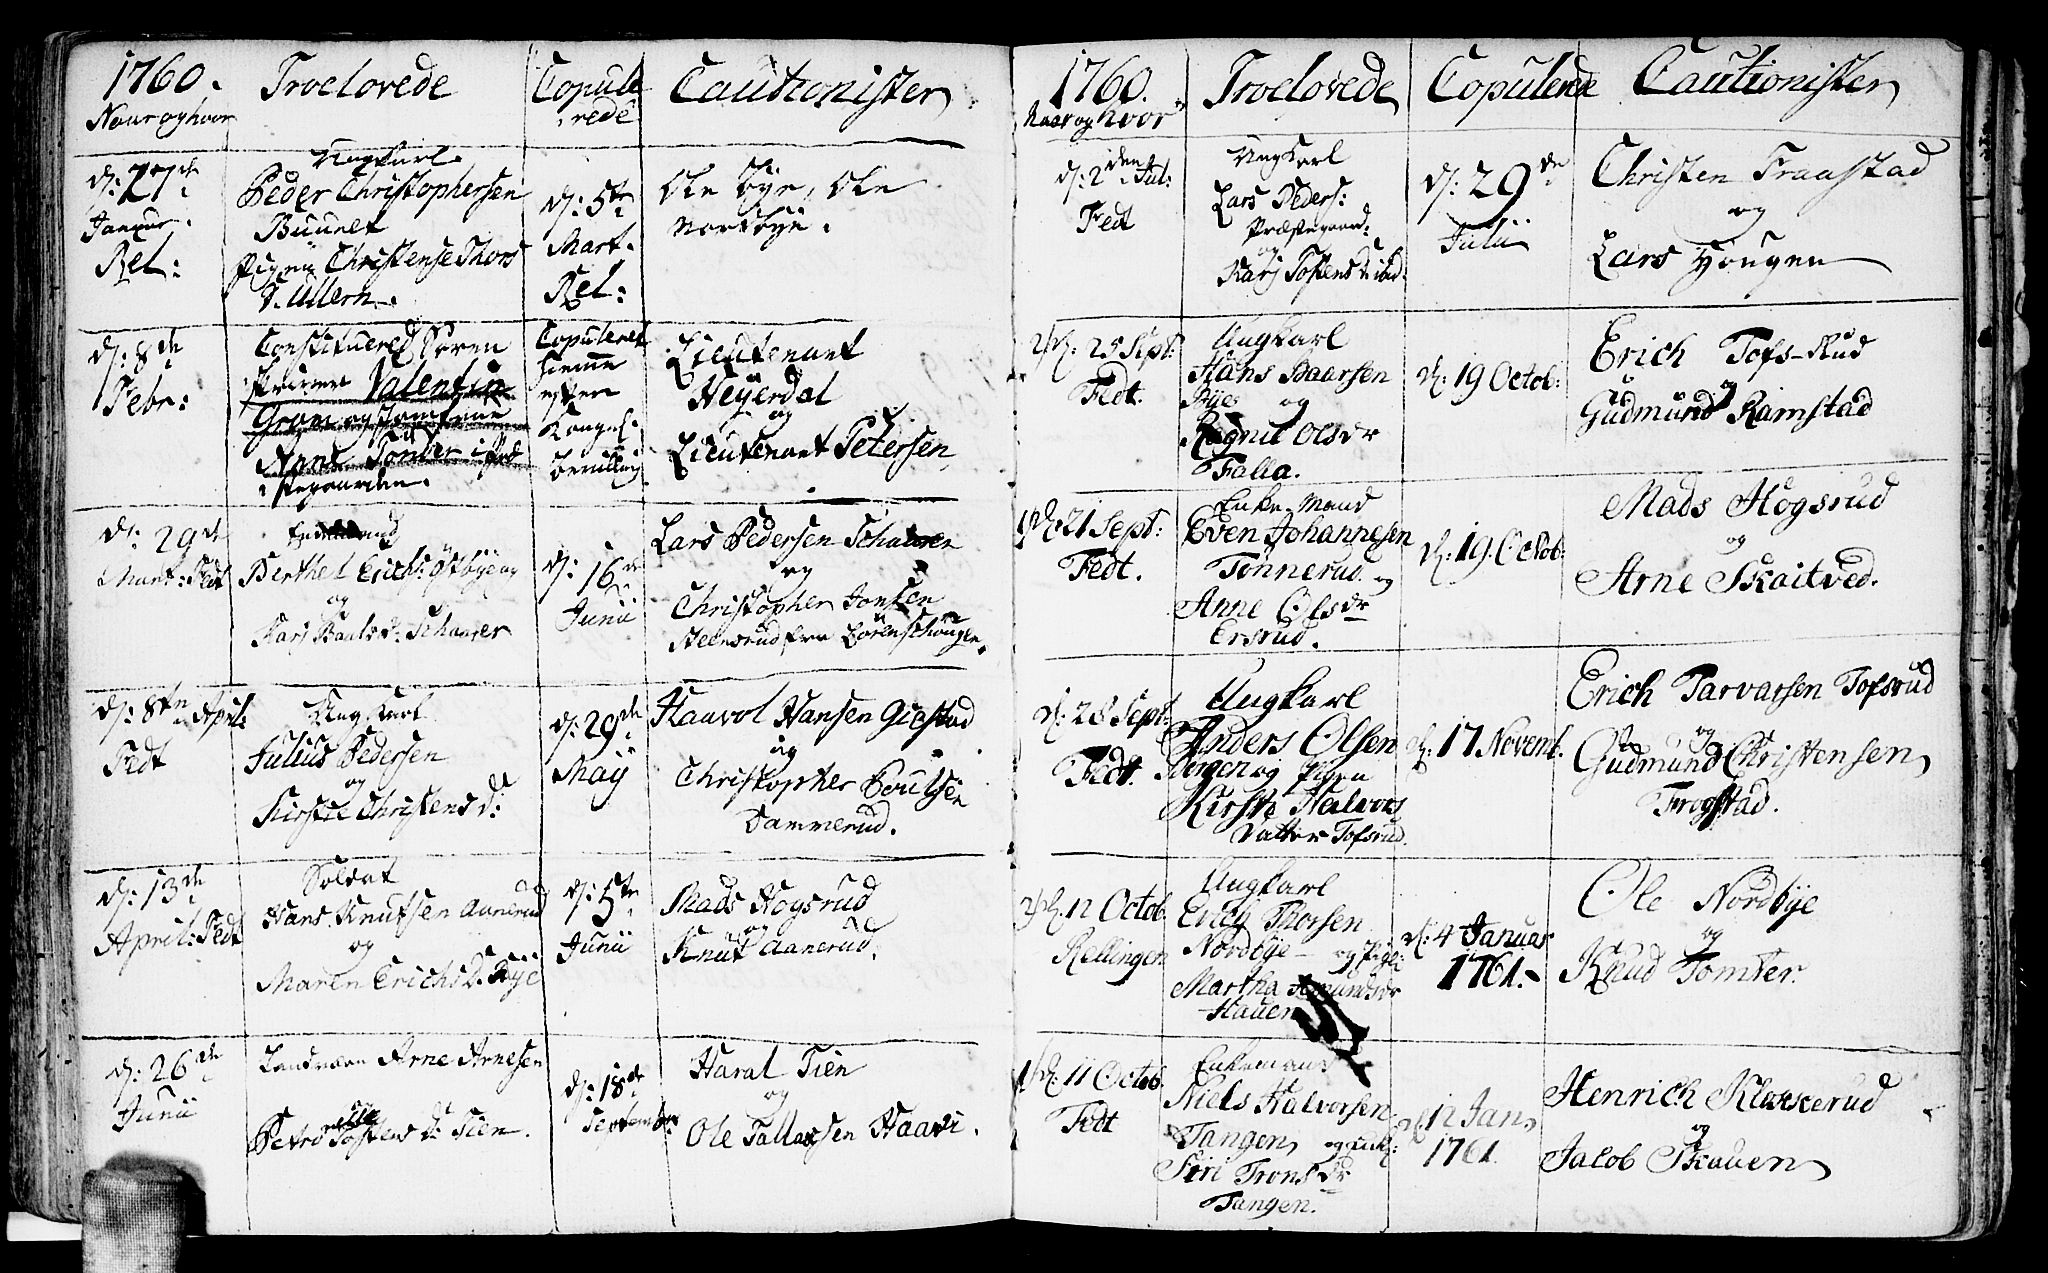 1760.
Naar og hvor
Troelovede
Copule
rede
Cautionister
d: 27de
Januar:
Rel:
Ungkarl
Peder Christophersen
Buuelt
Pigen Christense Thors
d. Ullern.
d: 5te
Mart.
Rel:
Ole Bye, Ole
Nordbye.
d: 8de
Febr:
Constituered Sören
skriver Valentin
Gram og Jomfrue
Anne Tomter i Præ
stegaarden.
Copuleret
hiemme
efter
Kongel:
bevilling
Lieutenant
Heyerdal
og
Lieutenant Petersen
d: 29de
Mart: Fedt
Berthel Erichs: Østbye
og
Kari Baalsd: Schanser
d: 16de
Junii
Lars Pedersen Schanser
og
Christopher Jonsen
Steensrud fra Börenschougen.
d: 8ten April:
Fedt
Ungkarl
Julius Pedersen
og
Kirstie Christensd:
d: 29de
Maij
Haavol Hansen Giestad
og
Christopher Poulsen
Dammerud.
d: 13de
April: Fedt
Soldat
Hans Knutsen Aanerud
og
Maren Erichsd. Bye
d: 5te
Junii
Mads Hogsrud
og
Knut Aanerud.
d: 26de
Junii
Landværn Arne Arnesen
og
Tostensd: Tien.
d: 18de
September
Haral Tien
og
Ole Tallaxsen Haavi.
1760.
Naar og hvor
Troelovede
Copulerede
Cautionister
d: 2den Jul:
Fedt
Ungkarl
Lars Peders:
Præstegaard:
og
Kari Tostensd: ibd:
d: 29de
Julii
Christen Fraastad
og
Lars Hougen
d: 25 Sept:
Fedt.
Ungkarl
Hans Baarsen
Bye og
Ragnil Olsdr
Falla.
d: 19 Octob:
Erich Tofs-Rud
og
Gudmund Ramstad
d: 21 Sept:
Fedt.
Enke-Mand
Even Johannesen
Tönnerud og
Anne Olsdr
Ersrud.
d: 19 Octob:
Mads Hogsrud
og
Arne Skaitved.
d: 28 Sept:
Fedt.
Ungkarl
Anders Olsen
Bergen og Pigen
Kirste Halvors
Datter Tofsrud.
d: 17 Novemb.
Erich Tarvarsen Tofsrud
og
Gudmund Christensen
Frogstad.
d: 12 Octob.
Rellingen
Ungkarl
Erich Thorsen
Nordbye og Pige:
Martha Amundsdr
Hauer
d: 4 Januar
1761.
Ole Nordbye
og
Knud Tomter.
d: 11 Octob.
Fedt
Enkemand
Niels Halvorsen
Tangen og Enk:
Siri Tronsdr
Tangen.
d: 12 Jan.
1761.
Henrich Kloxerud
og
Jacob Skauen